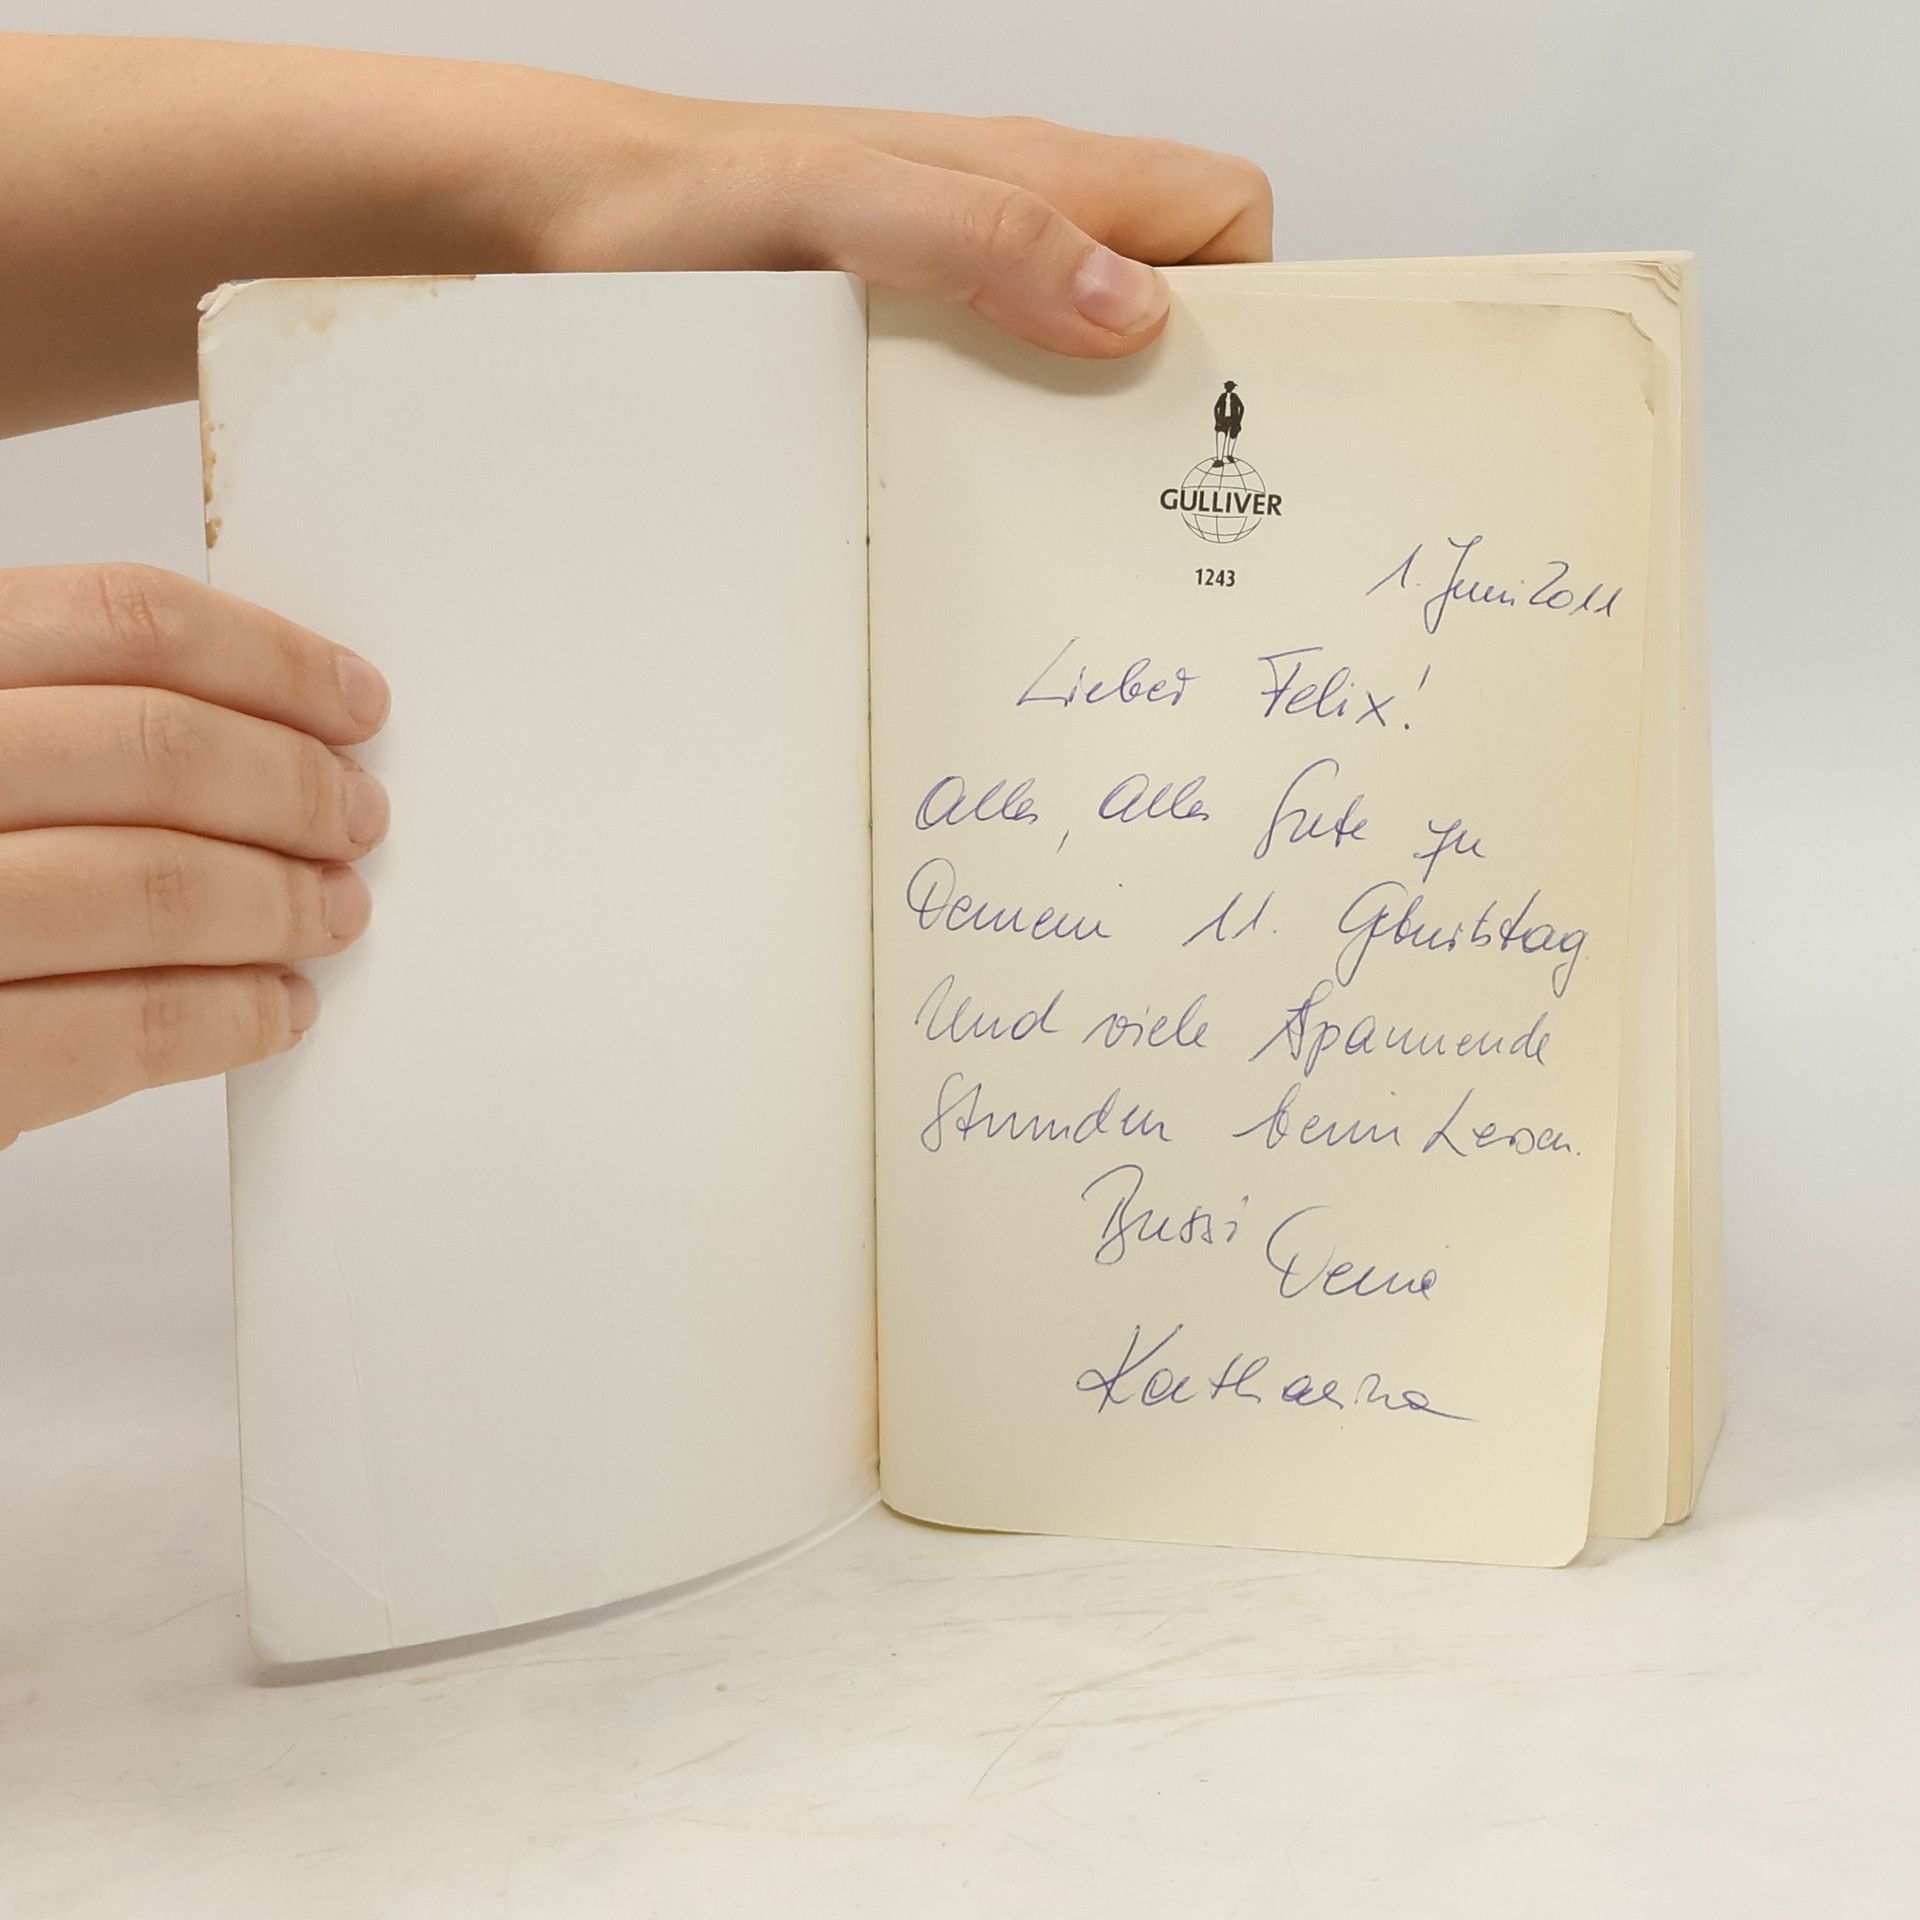 GULLIVER
1243
1. Juni 2011
Lieber Felix!
Alles, Alles Gute zu
Deinem 11. Geburtstag
Und viele Spannende
Stunden beim Lesen.
Bussi Deine
Katharina